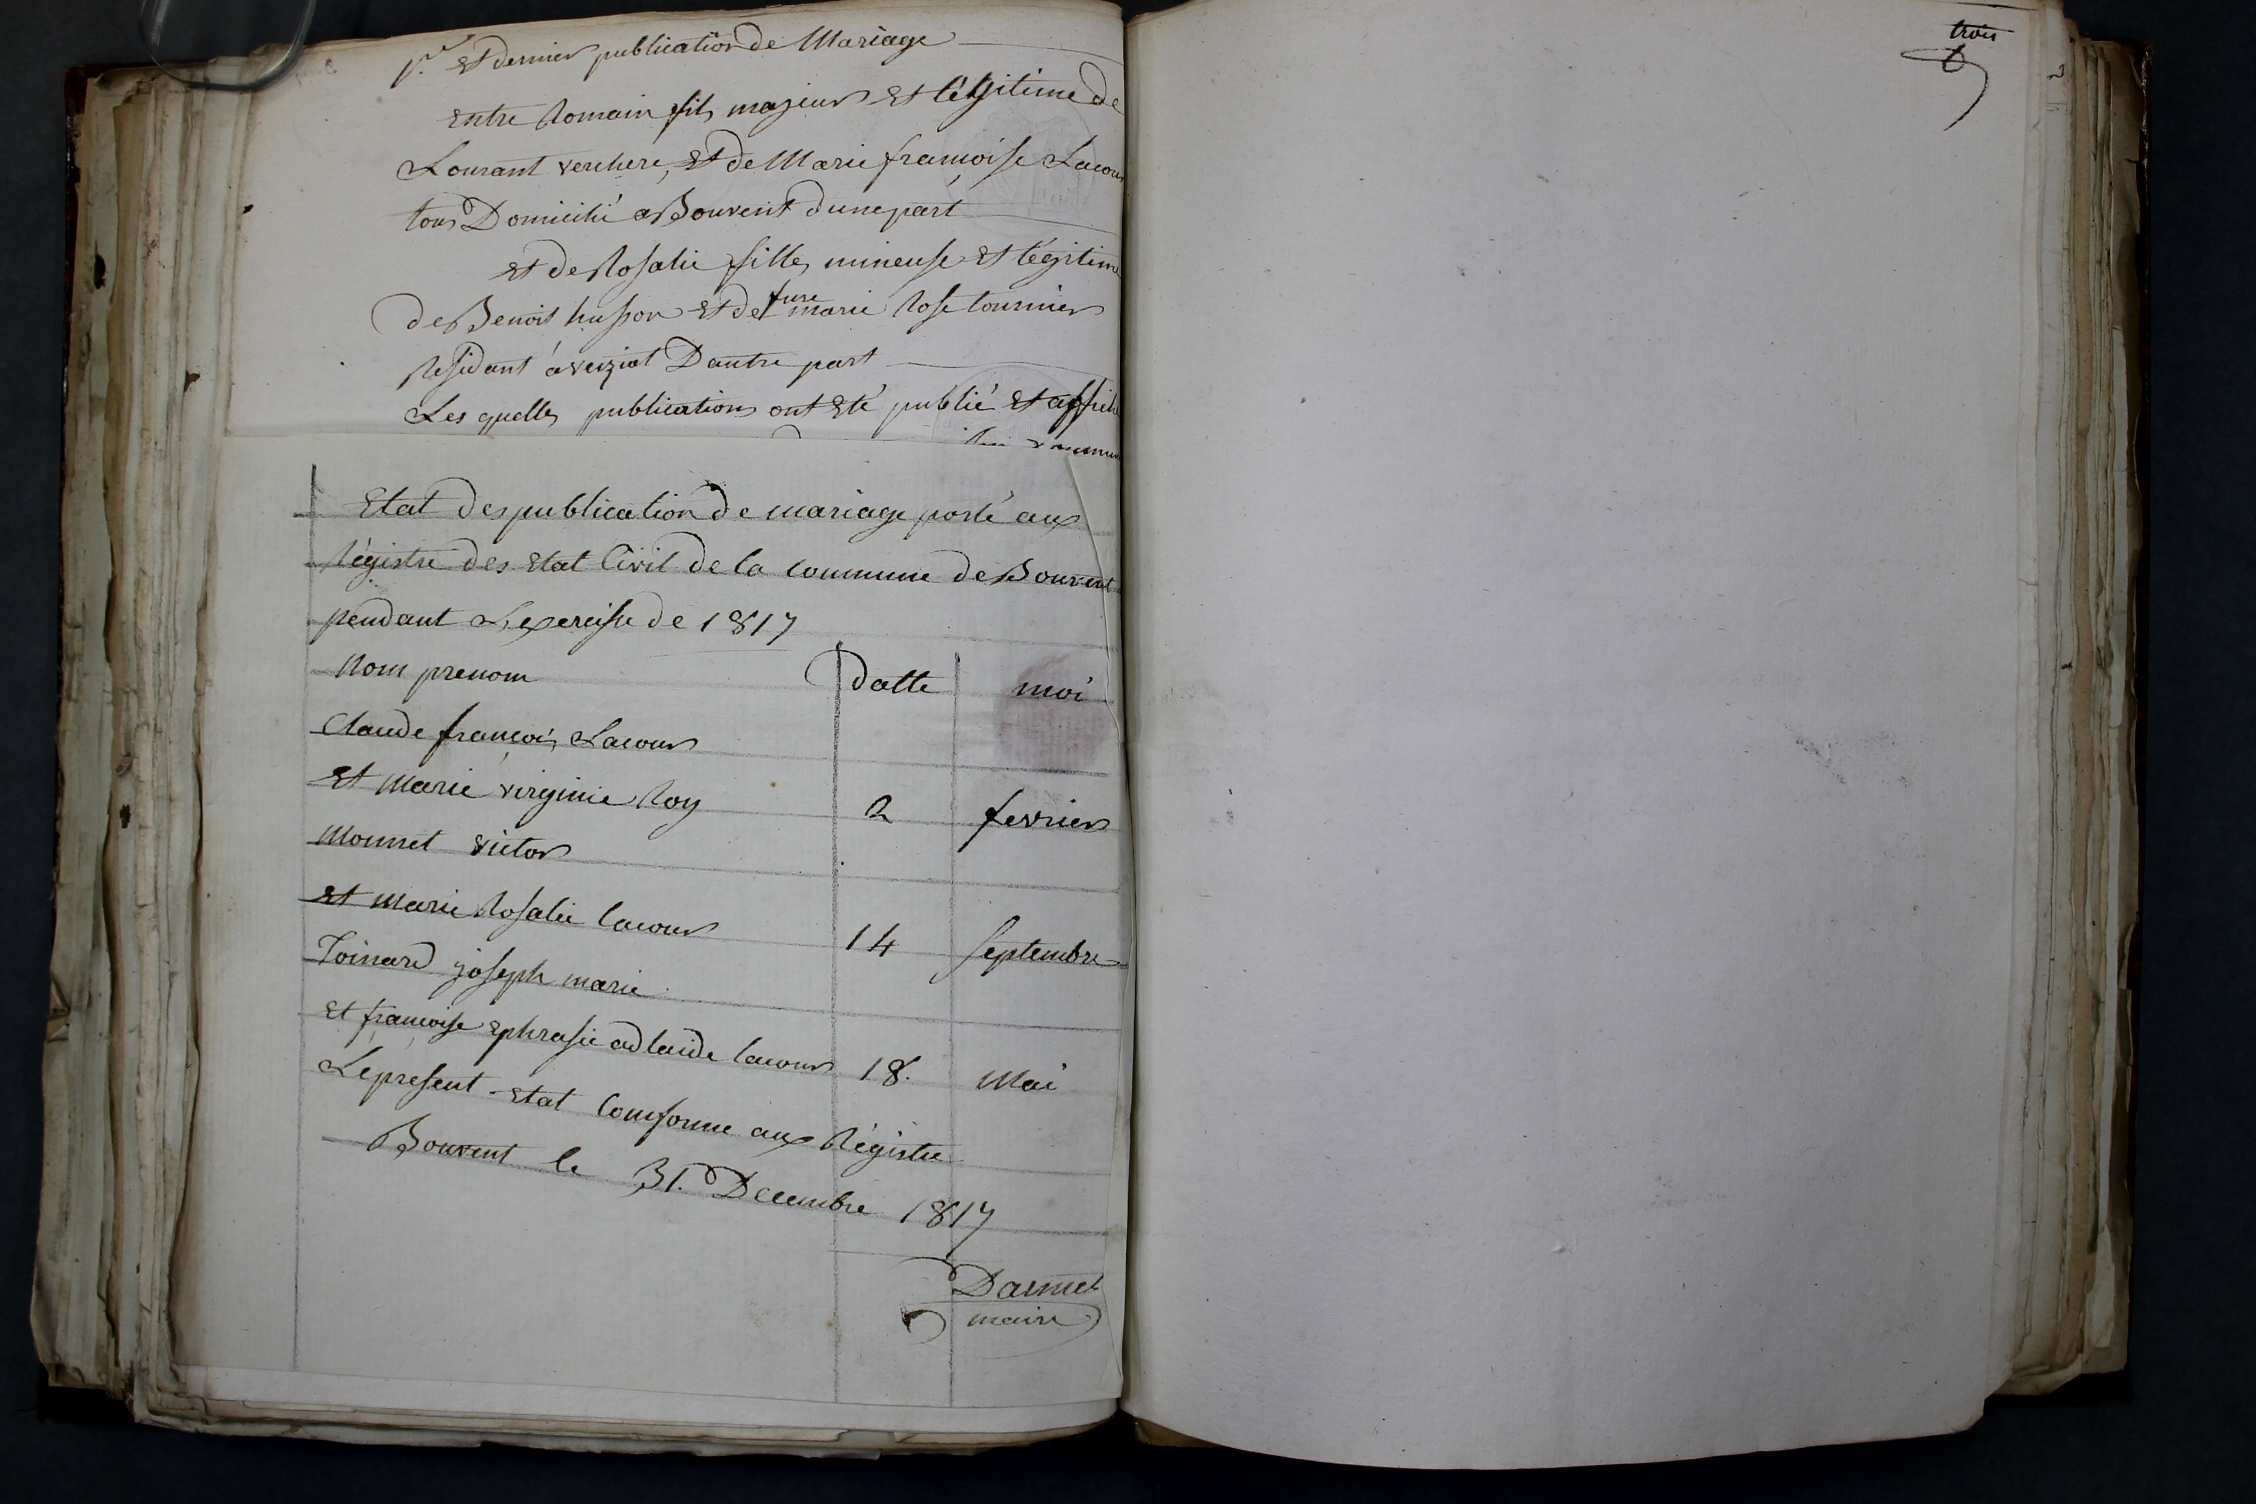 1.er et dernier publication de Mariage
entre Romain fils majeur et légitime de
Lourant verchere, et de Marie francoise Lacour
tous Domicilié a Bouvent dune part
et de Rosalie fille mineuse et légitime
de Benoit husson et de fure marie Rose tournier
Residant à veiziat D'autre part
Les quelles publications ont été publié et affiché
Etat des publication de mariage porté aux
Régistre des etat Civil de la commune de Bouvent
pendant L'exercisse de 1817
Nom prenom Datte moi
Claude françois Lacour
et Marie virginie Roy 2 fevrier
Monnet victor
et Marie Rosalie lacour 14 septembre
Joinard joseph marie
et francoise ephrasie adlaide lacour 18. Mai
Le présent etat Comforme aux Régistre
Bouvent le 31. Decembre 1817
Darmet
maire
trois